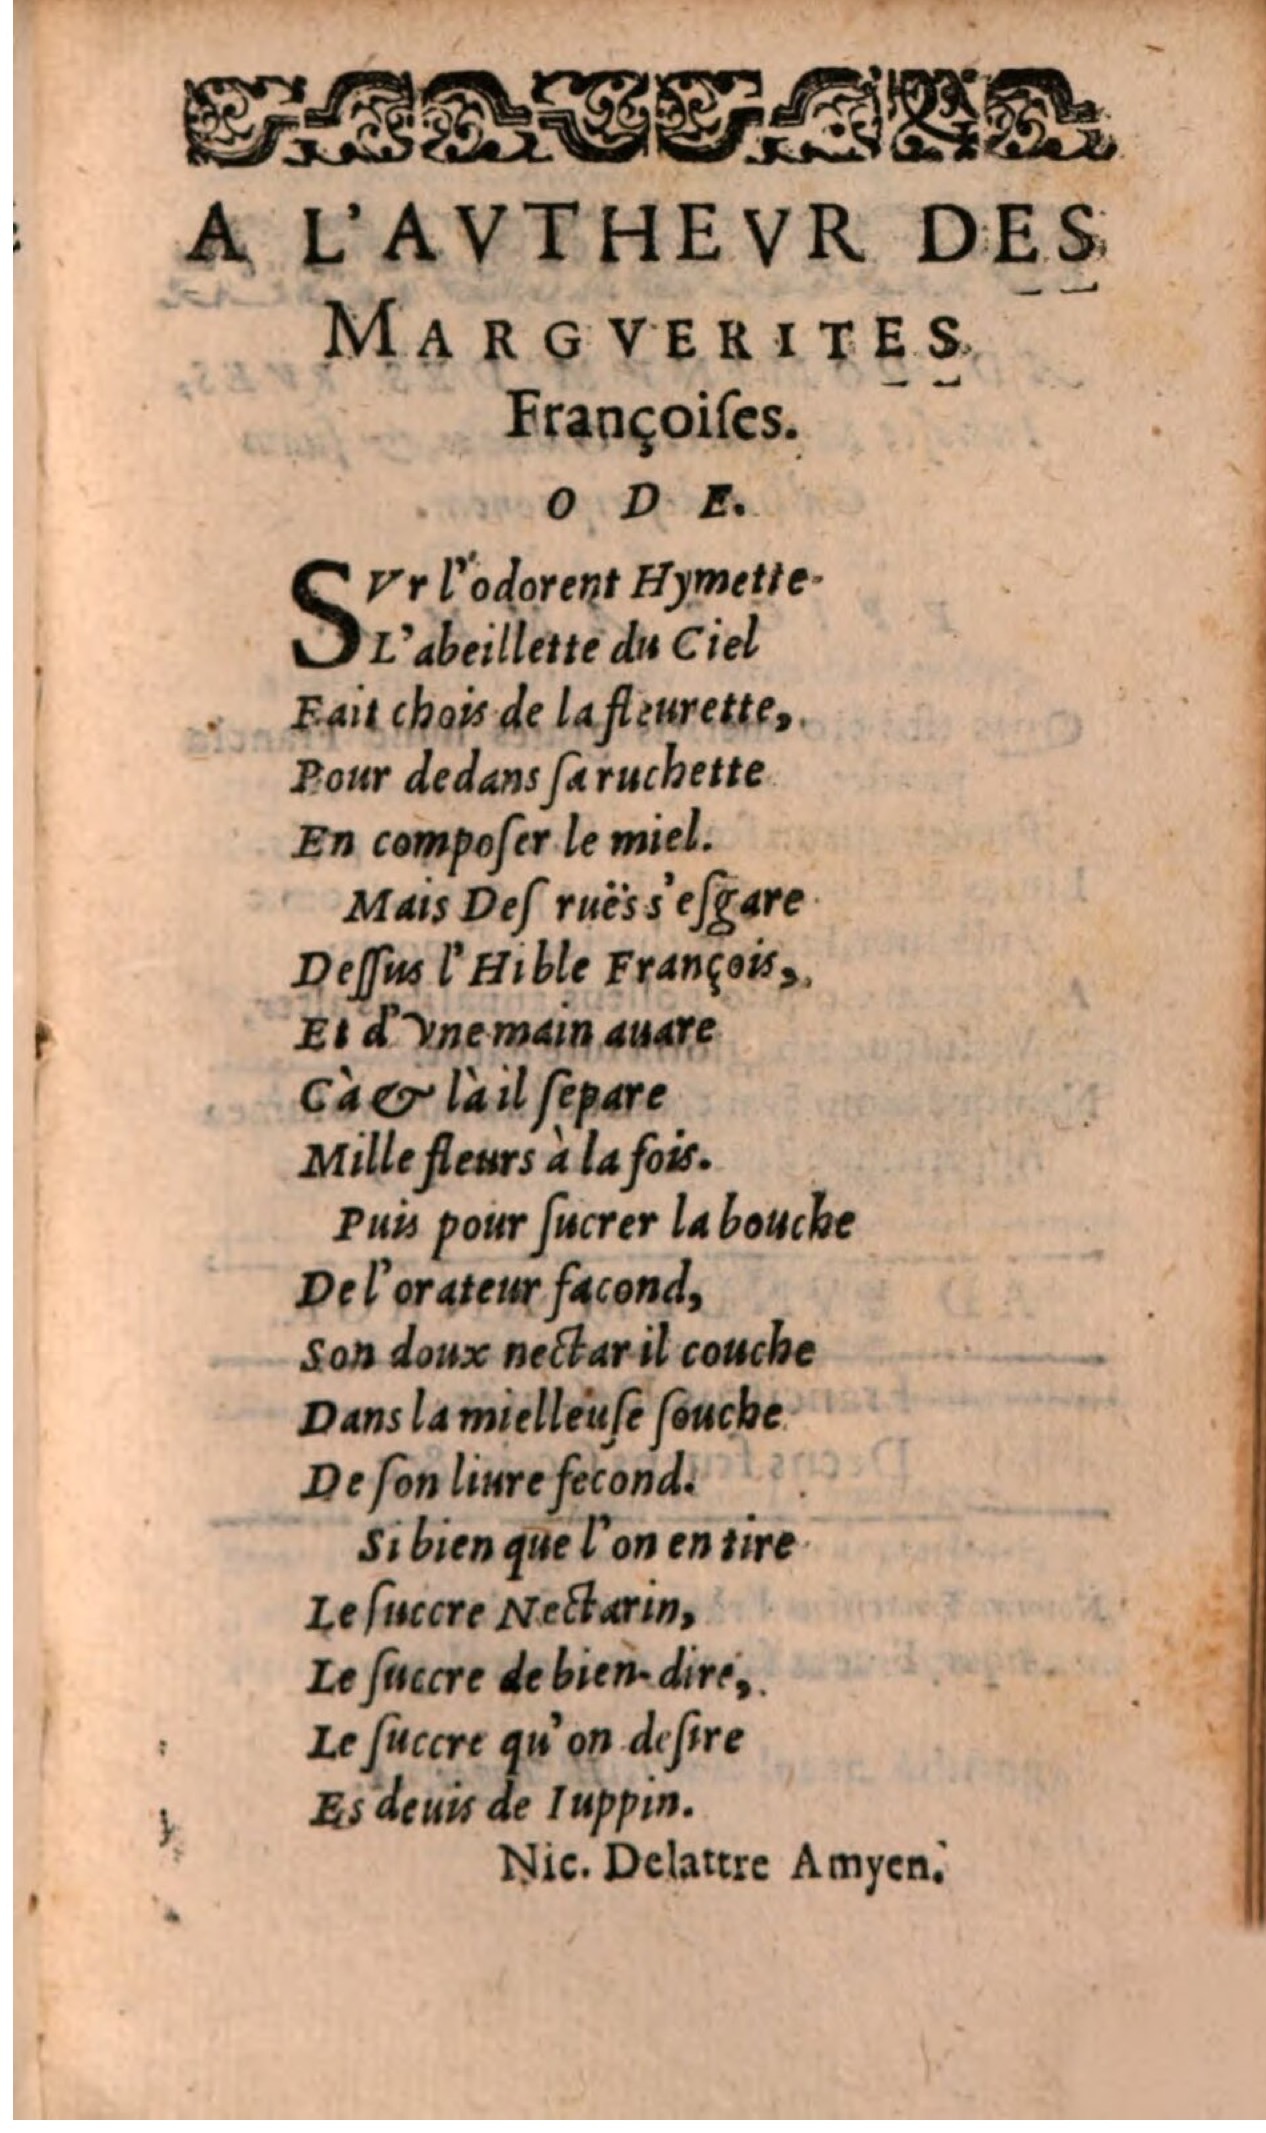 A L'AVTHEVR DES
MARGVERITES
Françoiſes.
ODE.
SVr l'odorent Hymette
L'abeillette du Ciel
Fait chois de la fleurette,
Pour dedans ſa ruchette
En compoſer le miel.
Mais Deſ ruës s'eſgare
Deſſus l'Hible François,
Et d'vne main auare
Cà & là il ſepare
Mille fleurs à la fois.
Puis pour ſucrer la bouche
De l'orateur facond,
Son doux nectar il couche
Dans la mielleuſe ſouche
De ſon liure fecond.
Si bien que l'on en tire
Le ſuccre Nectarin,
Le ſuccre de bien-dire,
Le ſuccre qu'on deſire
Es deuis de Iuppin.
Nic. Delattre Amyen.